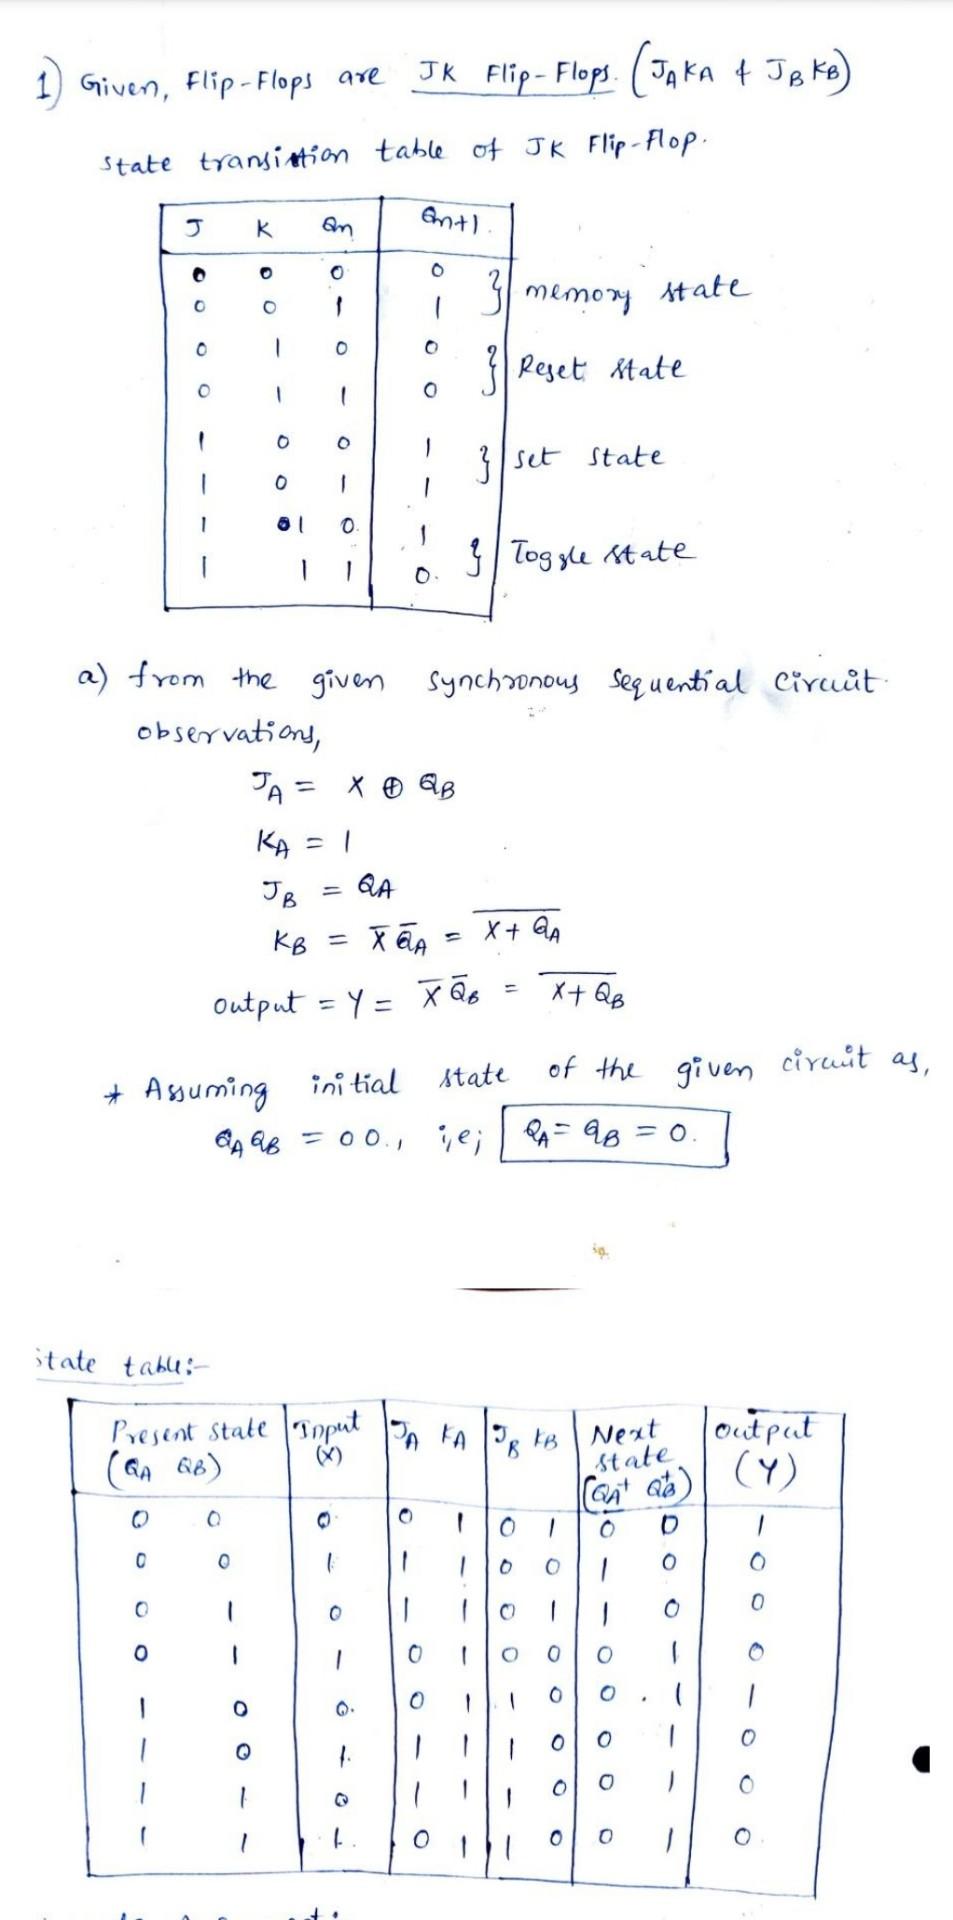 1) Given, Flip-Flops are JK Flip-Flops. (JAKA & JBKB)
state transition table of JK Flip-Flop.
J K Qn Qn+1.
0 0 0 0
0 0 1 1
} memory state
0 1 0 0
0 1 1 0
} Reset state
1 0 0 1
1 0 1 1
} set state
1 1 0. 1
1 1 1 0.
} Toggle state
a) from the given synchronous Sequential Circuit
observations,
J_A = X ⊕ Q_B
K_A = 1
J_B = Q_A
K_B = X̅ Q̅_A = \overline{X + Q_A}
output = Y = X̅ Q̅_B = \overline{X + Q_B}
* Assuming initial state of the given circuit as,
Q_A Q_B = 00., i,e; Q_A = Q_B = 0.
state table:-
Present state Input J_A K_A J_B K_B Next output
(Q_A Q_B) (X) state (Y)
(Q_A⁺ Q_B⁺)
0 0 0. 0 1 0 1 0 0 1
0 0 1. 1 1 0 0 1 0 0
0 1 0 1 1 0 1 1 0 0
0 1 1 0 1 0 0 0 1 0
1 0 0. 0 1 1 0 0 1 1
1 0 1. 1 1 1 0 0 1 0
1 1 0 1 1 1 0 0 1 0
1 1 1. 0 1 1 0 0 1 0.